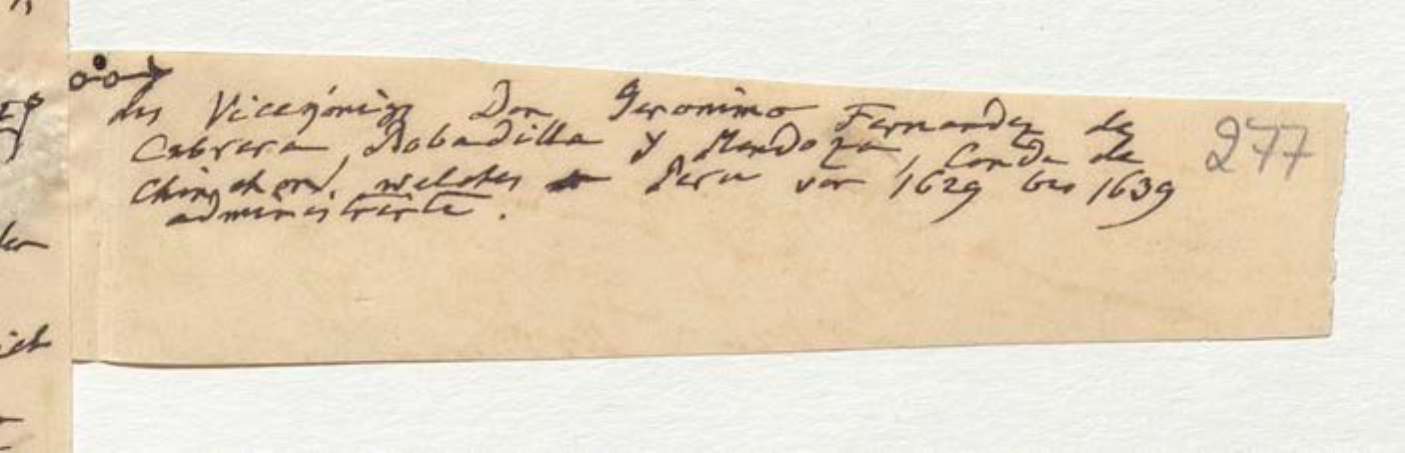 des Vicekönigs Don Geronimo Fernandez de 277
Cabrera, Bobadilla y Mendoza, Conde de
Chinchon, welcher Peru von 1629 bis 1639
administrirte.